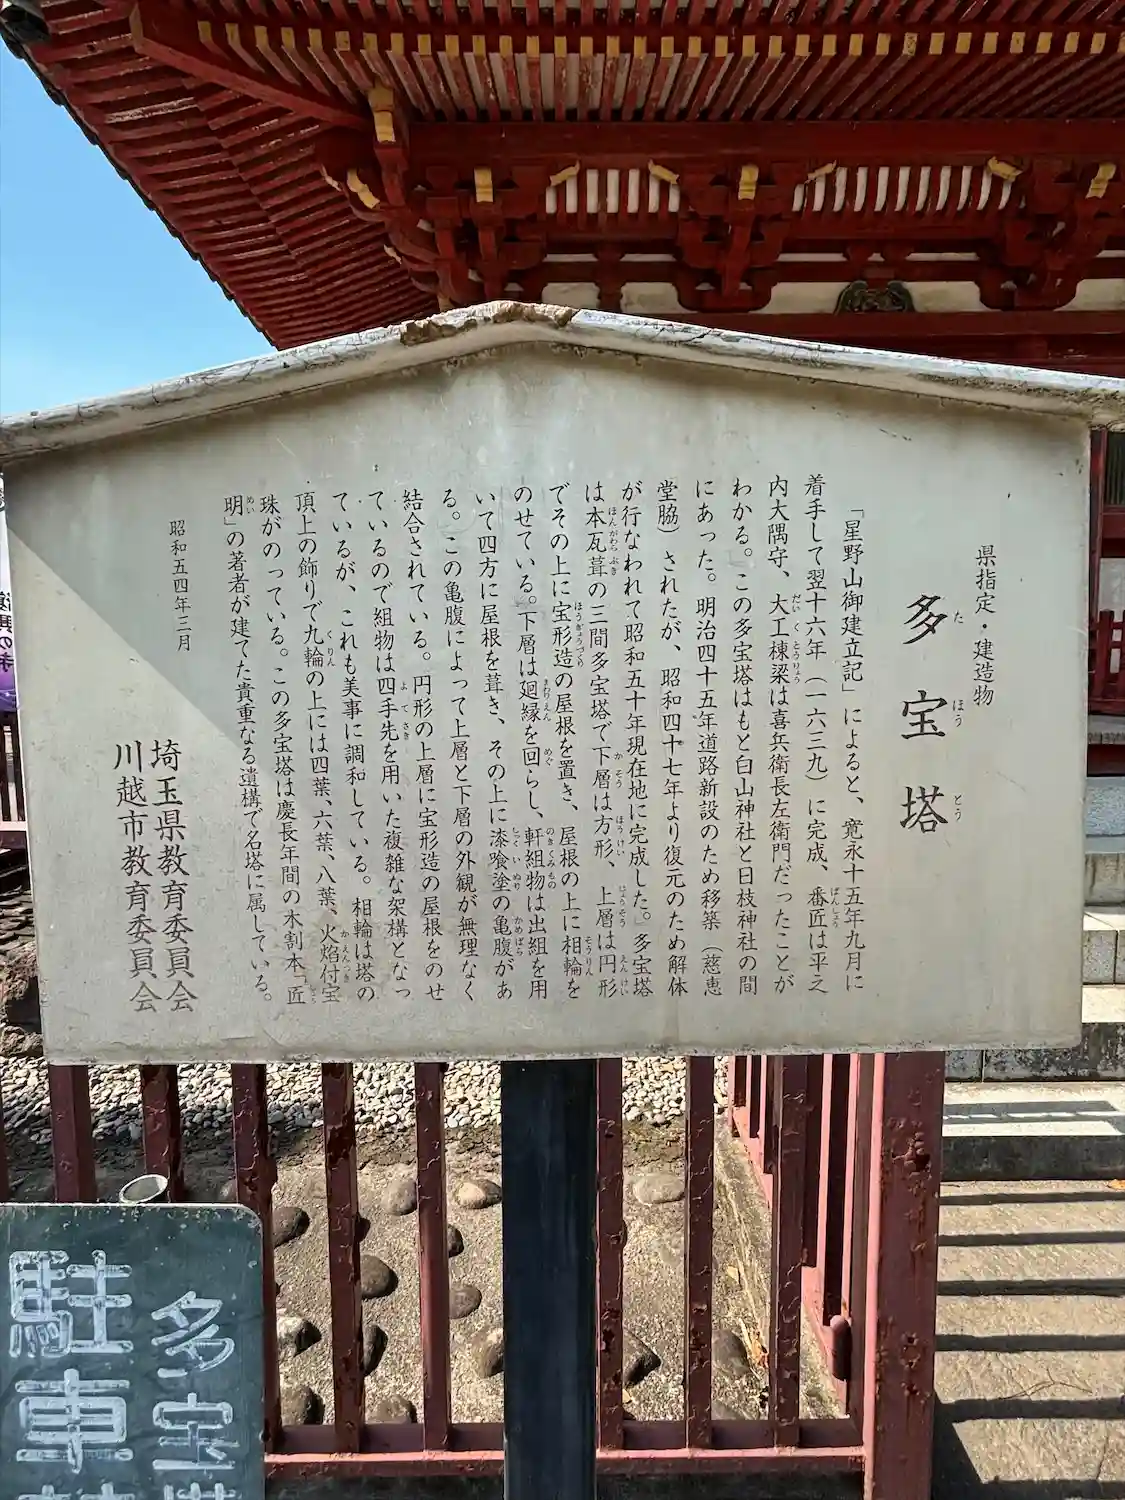 県指定・建造物
多宝塔
「星野山御建立記」によると、寛永十五年九月に
着手して翌十六年(一六三九)に完成、番匠は平之
内大隅守、大工棟梁は喜兵衛長左衛門だったことが
わかる。この多宝塔はもと白山神社と日枝神社の間
にあった。明治四十五年道路新設のため移築(慈恵
堂脇)されたが、昭和四十七年より復元のため解体
が行なわれて昭和五十年現在地に完成した。多宝塔
は本瓦葺の三間多宝塔で下層は方形、上層は円形
でその上に宝形造の屋根を置き、屋根の上に相輪を
のせている。下層は廻縁を回らし、軒組物は出組を用
いて四方に屋根を葺き、その上に漆喰塗の亀腹があ
る。この亀腹によって上層と下層の外観が無理なく
結合されている。円形の上層に宝形造の屋根をのせ
ているので組物は四手先を用いた複雑な架構となっ
ているが、これも美事に調和している。相輪は塔の
頂上の飾りで九輪の上には四葉、六葉、八葉、火焰付宝
珠がのっている。この多宝塔は慶長年間の木割本「匠
明」の著者が建てた貴重なる遺構で名塔に属している。
昭和五四年三月
埼玉県教育委員会
川越市教育委員会
多宝塔
駐車